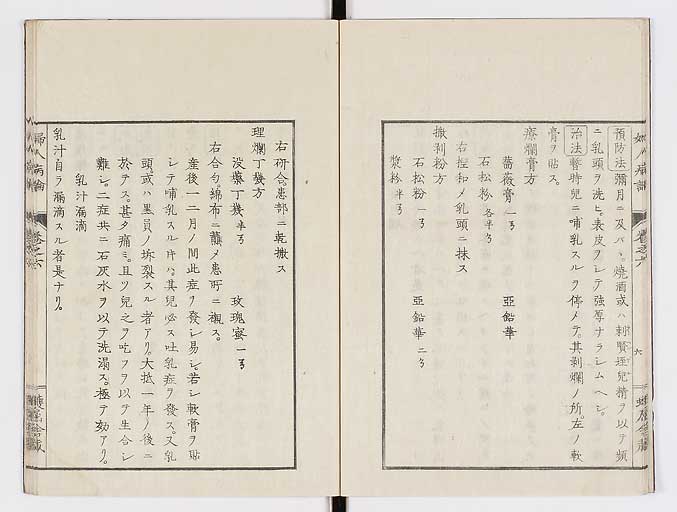 婦人病論
卷之六
六
預防法彌月ニ及バヽ燒酒或ハ剌賢垤兒精ヲ以テ頻
ニ乳頭ヲ洗ヒ。表皮ヲシテ強厚ナラシムヘシ。
治法暫時兒ニ哺乳スルヲ停メテ。其剥爛ノ所。左ノ軟
膏ヲ貼ス。
療爛膏方
薔薇膏 一ヲ 亞鉛華
石松粉 各半ヲ
右捏和メ乳頭ニ抹ス
撒剥粉方
石松粉 一ヲ 亞鉛華 二ヲ
漿粉 半ヲ
右研合。患部ニ乾撒ス
理爛丁幾方
没藥丁幾 半ヲ 玫瑰蜜 一ヲ
右合匀。綿布ニ蘸メ患所ニ襯ス。
産後一二月ノ間此症ヲ發シ易シ。若シ軟膏ヲ貼
シテ哺乳スル片ハ。其兒必ス吐乳症ヲ發ス。又乳
頭。或ハ暈員ノ坼裂スル者アリ。大抵一年ノ後ニ
於テス。甚タ痛ミ。且ツ兒之ヲ吃フヲ以テ生合シ
難シ。二症共ニ石灰水ヲ以テ洗溻ス。極テ効アリ。
乳汁漏滴
乳汁自ラ漏滴スル者是ナリ。
婦人病論
卷之六